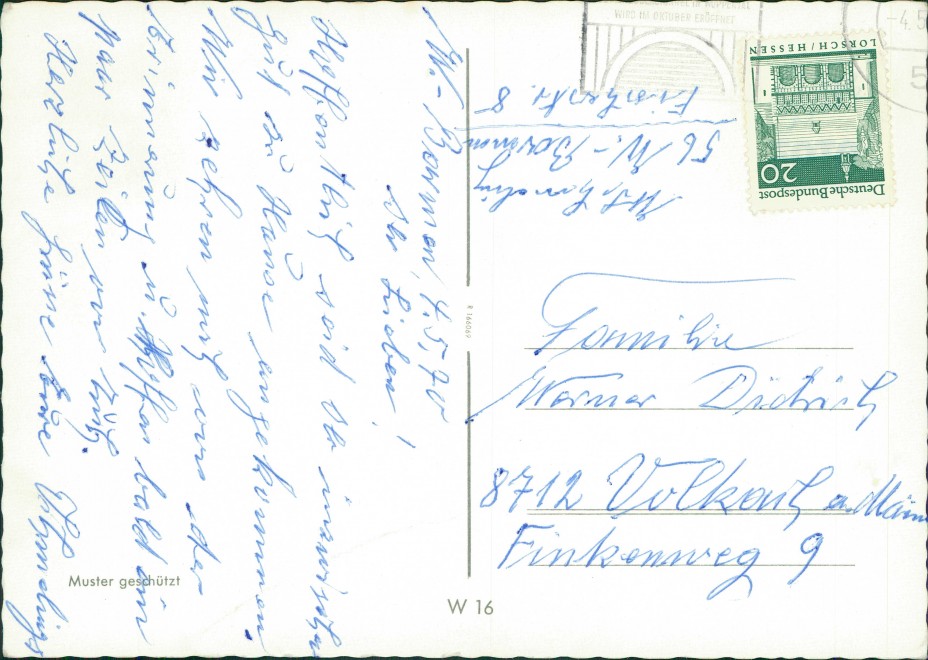 W.-Barmen, 4.5.70
Ihr Lieben!
Hoffentlich seid Ihr inzwischen
gut zu Hause angekommen.
Wir zehren noch von der
Erinnerung u. hoffen bald ein
paar Zeilen von Euch.
Herzliche Grüsse Eure
Muster geschützt
WIRD IM OKTOBER ERÖFFNET
-4.5
5
Deutsche Bundespost
20
LORSCH/HESSEN
56 W.-Barmen
8
R 166069
Familie
Werner Dietrich
8712 Volkach a. Main
Finkenweg 9
W 16